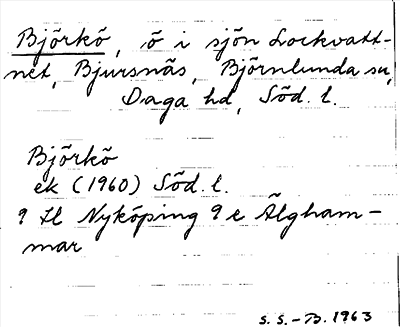 Björkö, ö i sjön Lockvatt-
net, Bjursnäs, Björnlunda sn,
Daga hd, Söd. l.
Björkö
ek (1960) Söd. l.
9 H Nyköping 9 e Älgham-
mar
S. S. - B. 1963